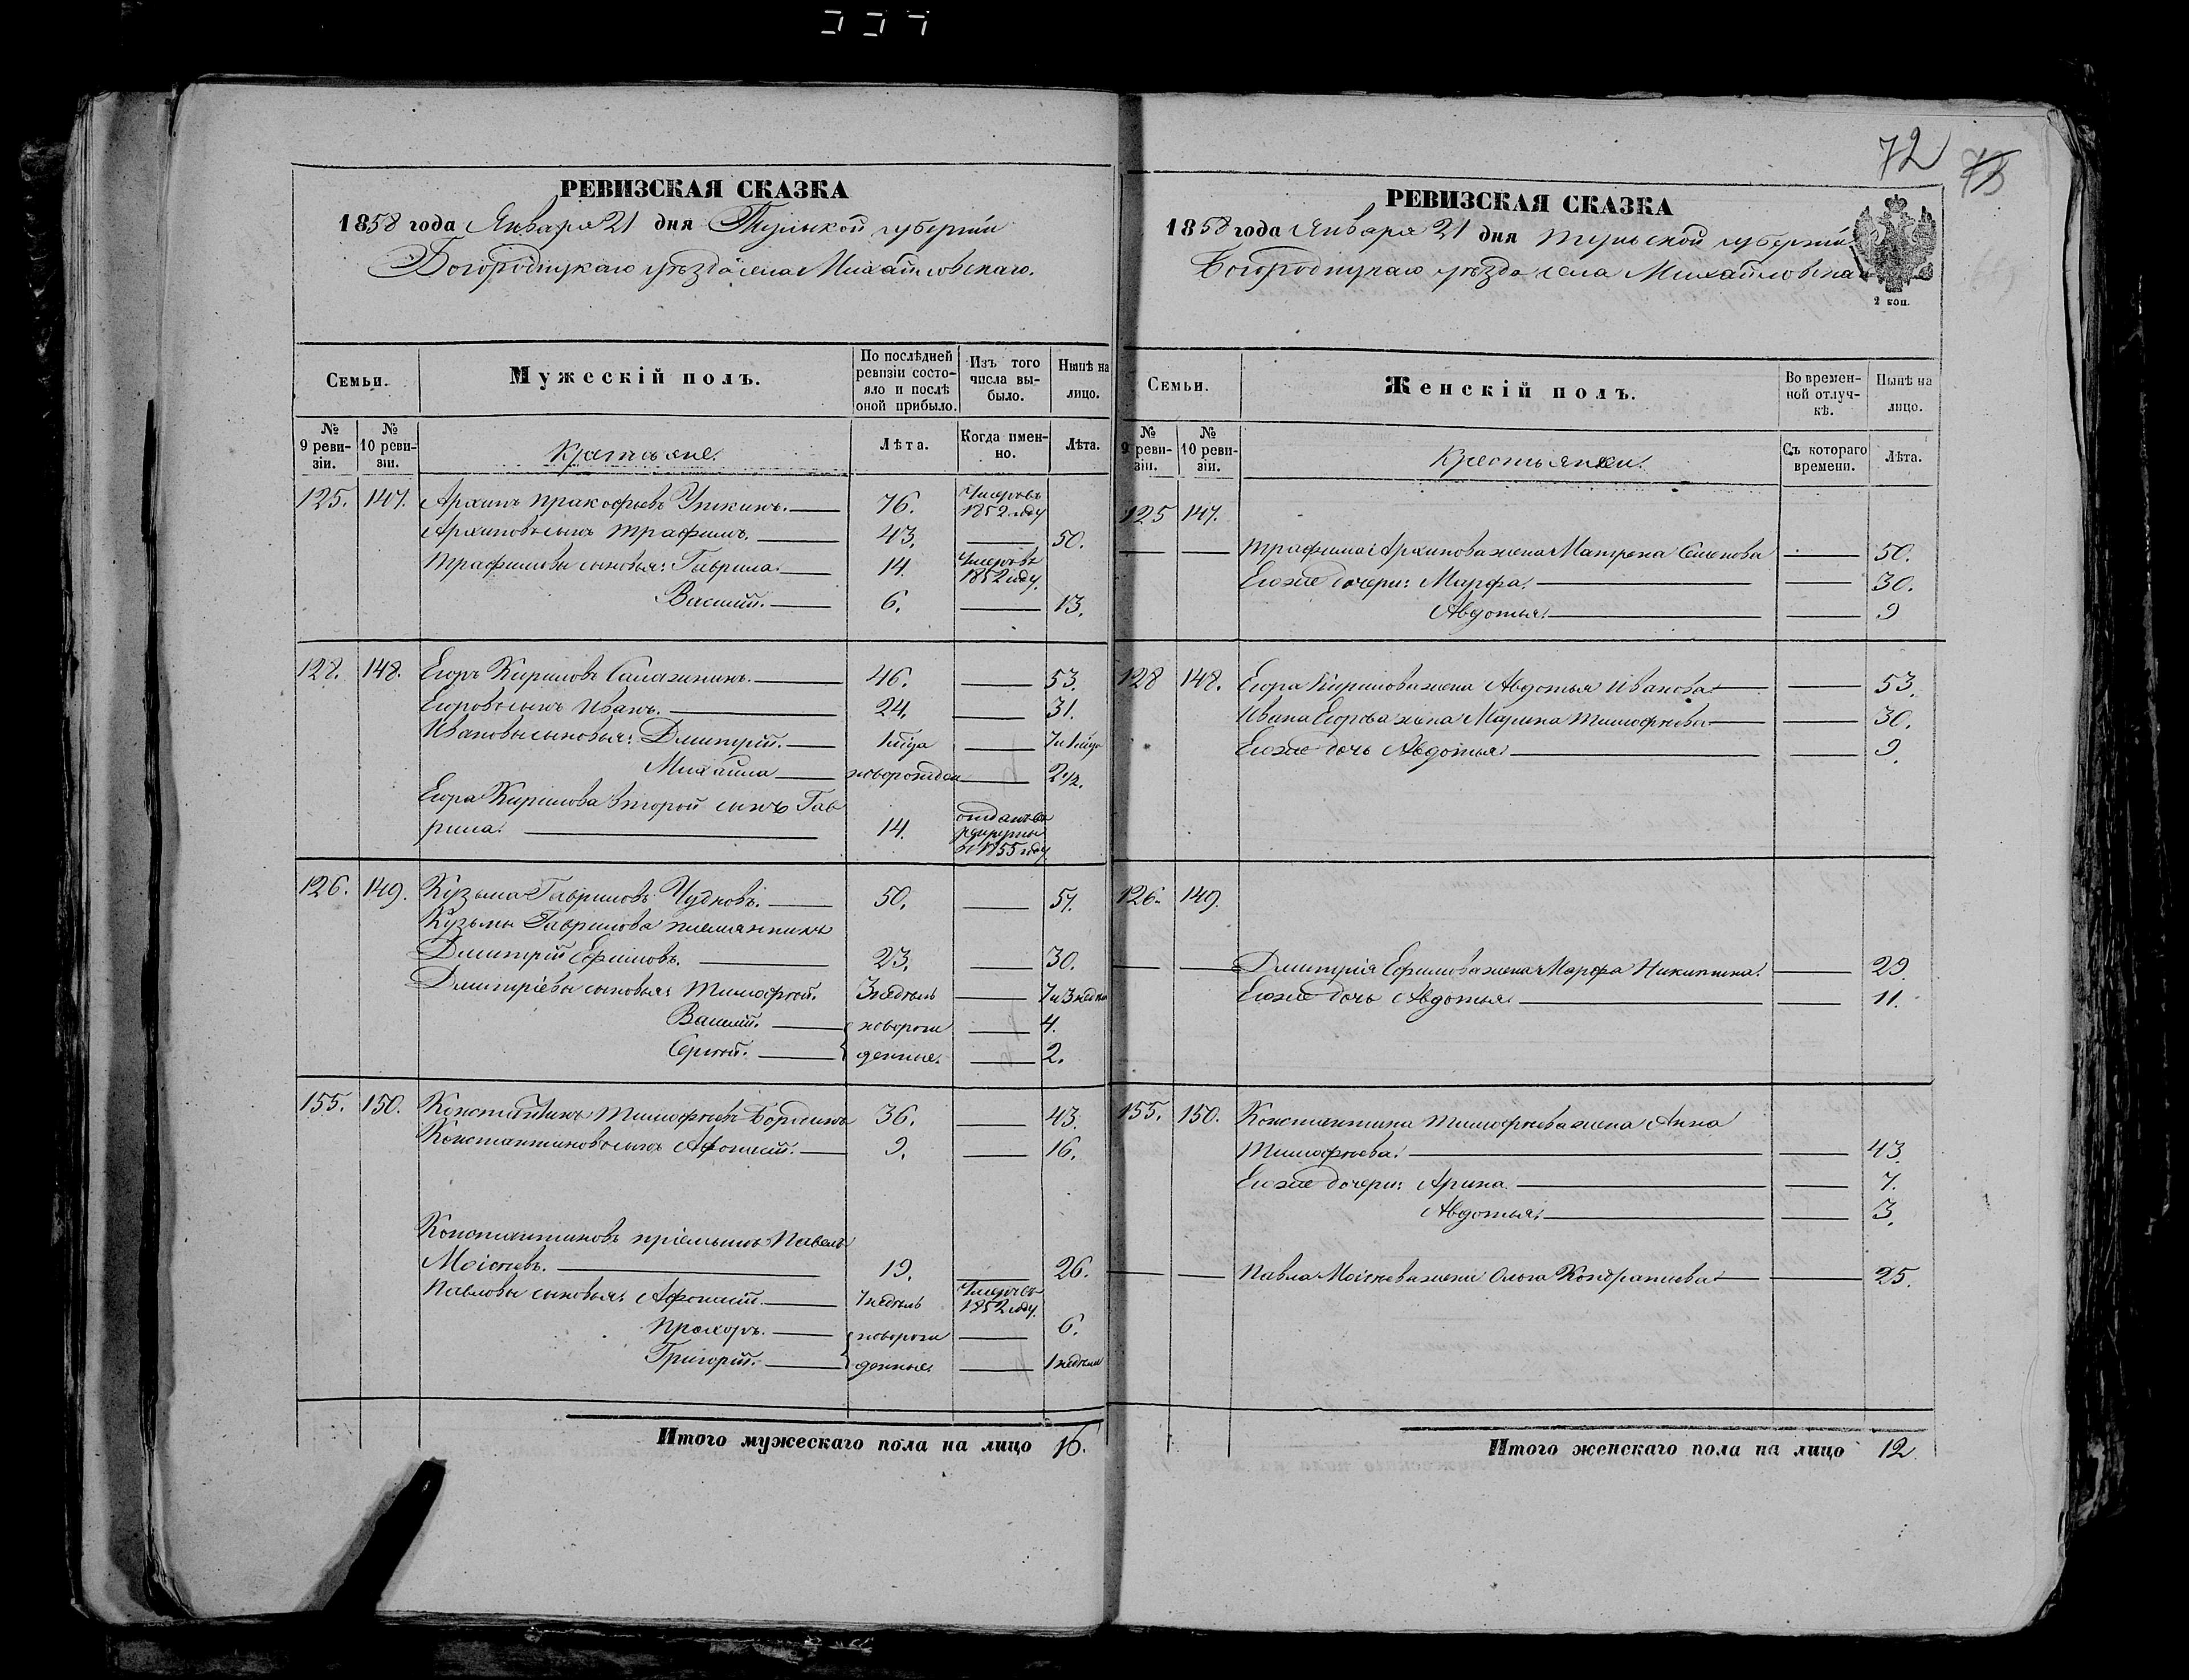 72
73
РЕВИЗСКАЯ СКАЗКА
1858 года Января 21 дня Тульской губерніи
Богородицкаго уѣзда села Михайловскаго.
Семьи.
Мужескій полъ.
По послѣдней ревизіи состояло и послѣ оной прибыло.
Изъ того числа выбыло.
Нынѣ на лицо.
№ 9 ревизіи.
№ 10 ревизіи.
Крестьяне.
Лѣта.
Когда именно.
Лѣта.
125. 147. Архипъ Пракофьевъ 76. Умеръ въ 1852 году
Архиповъ сынъ Трафимъ. 43. 50.
Трафимовы сыновья: Гаврила. 14. Умеръ въ 1852 году.
Василій. 6. 13.
128. 148. Егоръ Кириловъ 46. 53.
Егоровъ сынъ Иванъ. 24. 31.
Ивановы сыновья: Дмитрій. 1 мѣца 7 и 1 мѣца
Михайла новорожден 2 1/2.
Егора Кирилова второй сынъ Гав
рила. 14. отданъ въ рекруты в 1855 году
126. 149. Кузьма Гавриловъ Чудновъ. 50. 57.
Кузьмы Гаврилова племянникъ
Дмитрій Ефимовъ. 23. 30.
Дмитріевы сыновья: Тимофей. 3 недѣль 7 и 3 недѣл
Василій. новорож 4.
Сергѣй. денные. 2.
155. 150. Константинъ Тимофѣевъ 36. 43.
Константиновъ сынъ Афонасій. 9. 16.
Константиновъ пріемышъ Павелъ
Моісѣевъ. 19. 26.
Павловы сыновья: Афонасій. 7 недѣль Умеръ въ 1852 году.
Прохоръ. новорож 6.
Григорій. денные. 1 недѣли
Итого мужескаго пола на лицо 16.
РЕВИЗСКАЯ СКАЗКА
1858 года Января 21 дня Тульской губерніи
Богородицкаго уѣзда села Михайловска
2 коп.
Семьи.
Женскій полъ.
Во временной отлучкѣ.
Нынѣ на лицо.
№ 9 ревизіи.
№ 10 ревизіи.
Крестьянки.
Съ котораго времени.
Лѣта.
125 147.
Трафима Архипова жена Матрена Семенова 50.
Егоже дочери: Марфа. 30.
Авдотья. 9
128 148. Егора Кирилова жена Авдотья Иванова 53.
Ивана Егорова жена Марина Тимофѣева 30.
Егоже дочь Авдотья. 9.
126. 149.
Дмитрія Ефимова жена Марфа Никитина. 29
Егоже дочь Авдотья 11.
155. 150. Константина Тимофѣева жена Анна
Тимофѣева. 43
Егоже дочери: Арина. 7.
Авдотья. 3.
Павла Моісѣева жена Ольга Кондратьева 25.
Итого женскаго пола на лицо 12